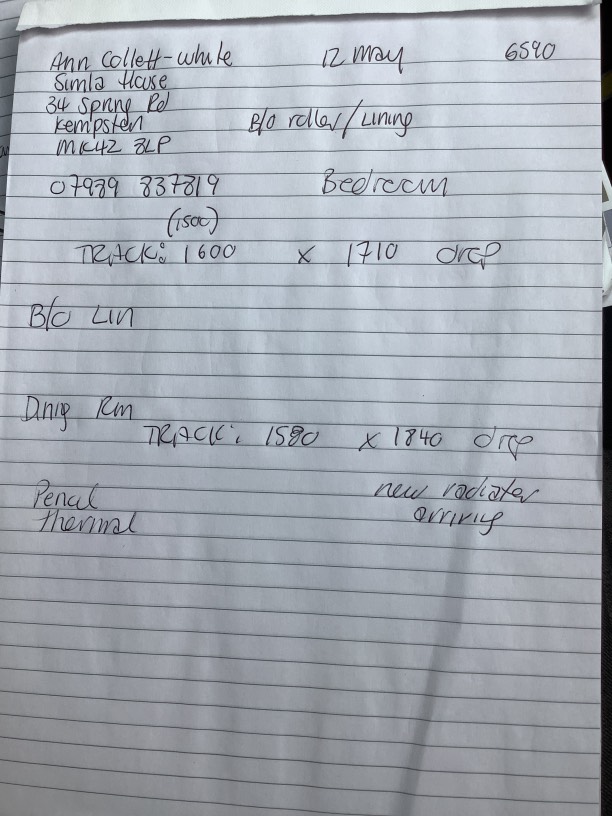 Ann Collett-White 12 May 6590
Simla House
34 Spring Rd
Kempston B/O roller/Lining
MK42 8LP
07989 837819 Bedroom
(1500)
TRACK: 1600 x 1710 drop
B/O Lin
Dnig Rm
TRACK: 1580 x 1840 drop
Pencil new radiator
thermal arriving